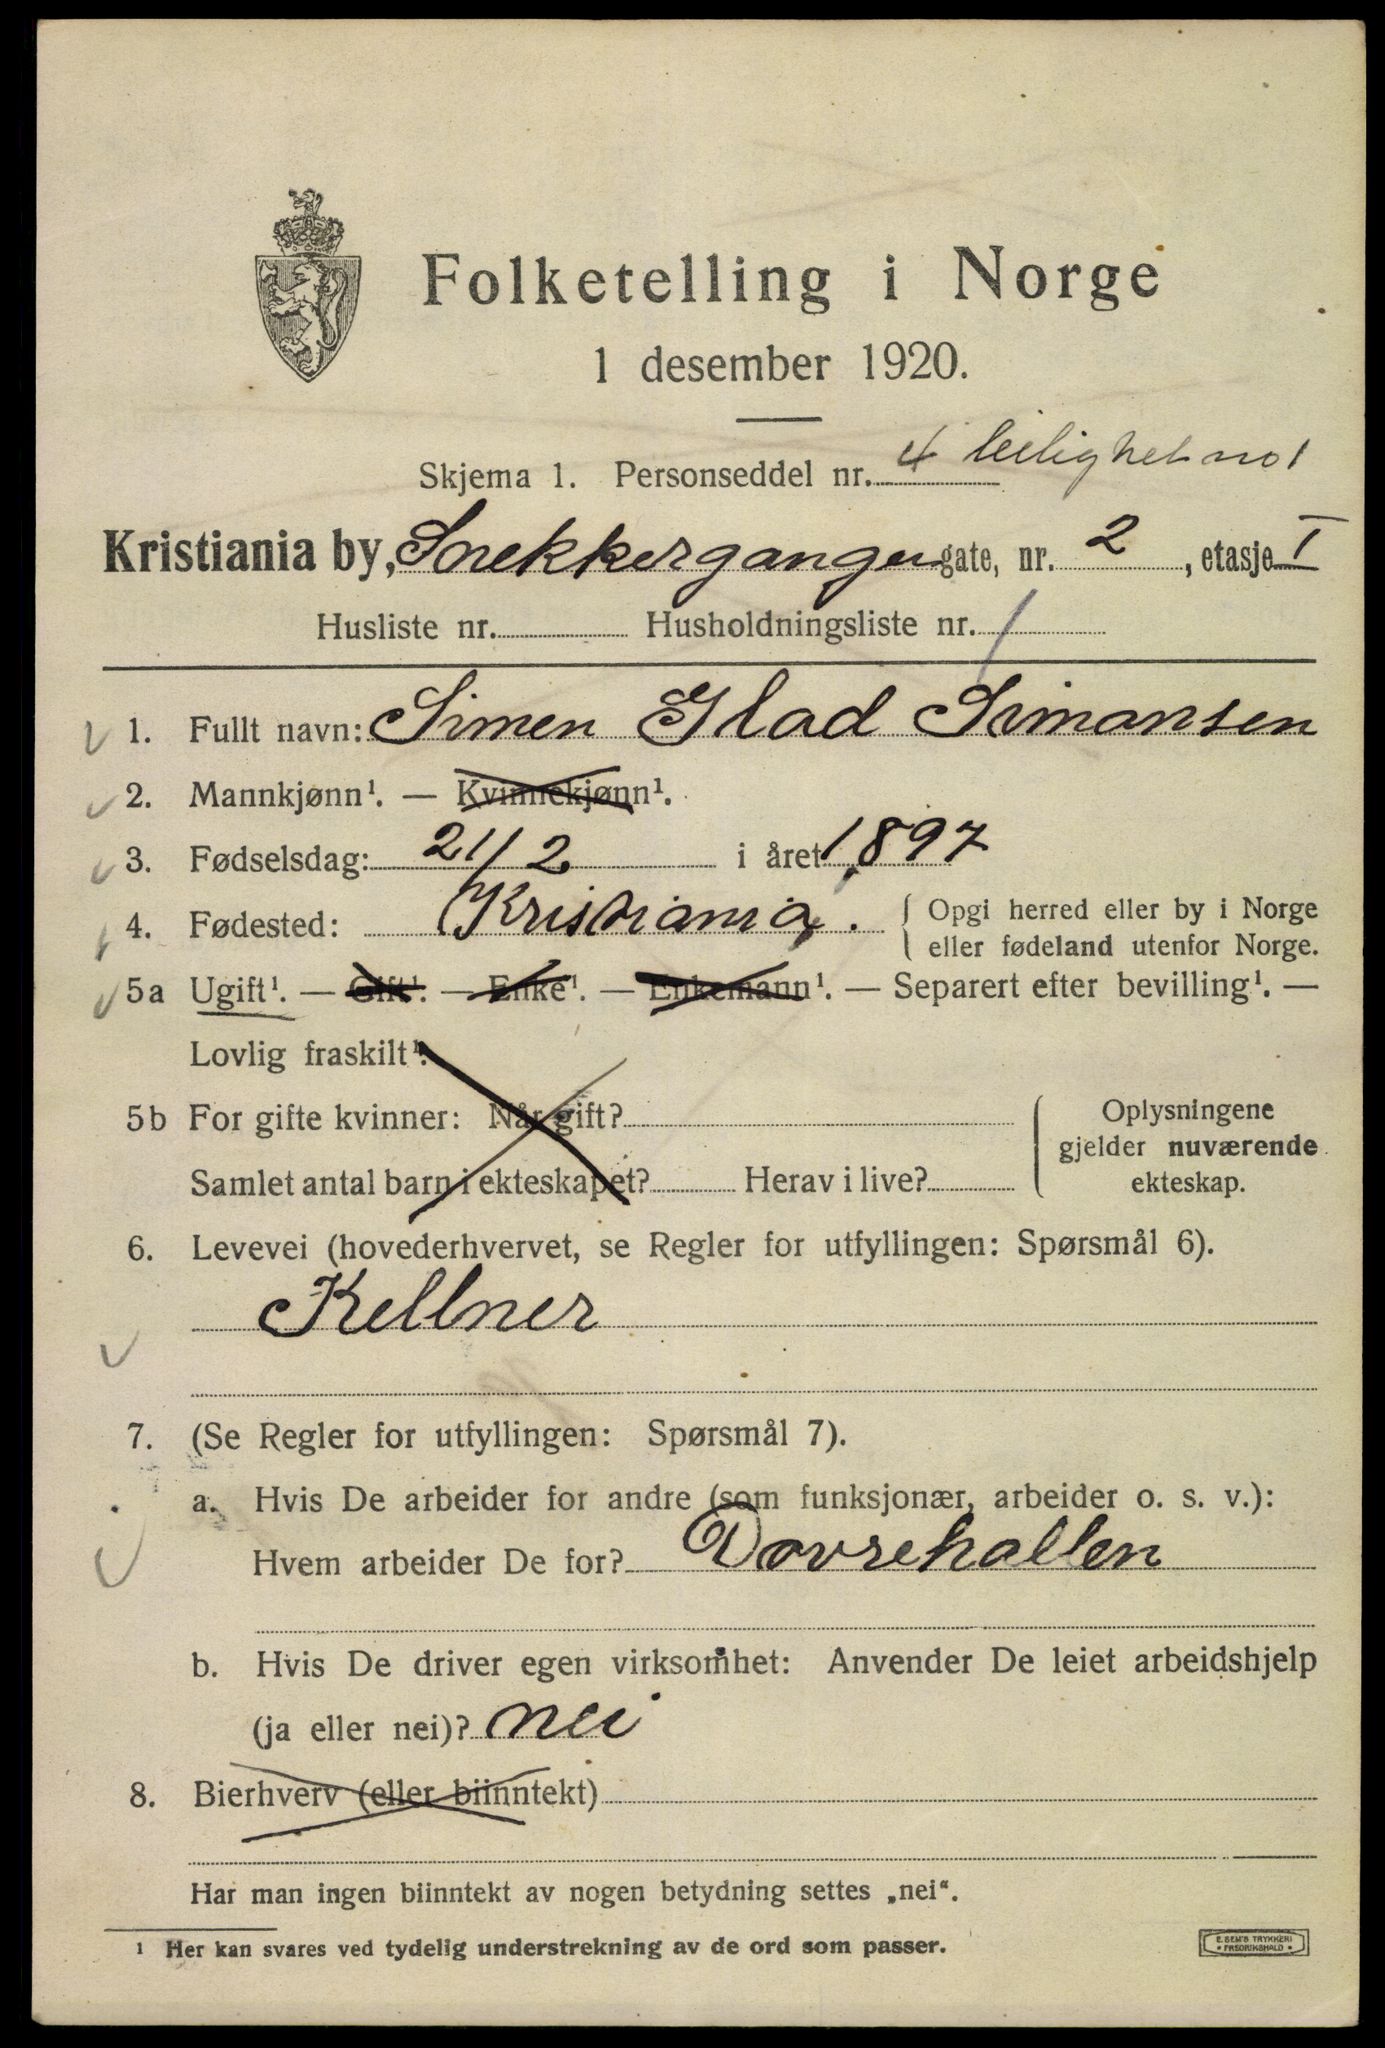 Folketelling i Norge
1 desember 1920.
Skjema 1. Personseddel nr. 4 leilighet no 1
Kristiania by, Snekkergangen gate, nr. 2, etasje I
Husliste nr. Husholdningsliste nr. 1
1. Fullt navn: Simen Glad Simansen
2. Mannkjønn¹. — Kvinnekjønn¹.
3. Fødselsdag: 21/2 i året 1897
4. Fødested: Kristiania. Opgi herred eller by i Norge
eller fødeland utenfor Norge.
5a Ugift¹. — Gift¹. — Enke¹. — Enkemann¹. — Separert efter bevilling¹. —
Lovlig fraskilt¹.
5b For gifte kvinner: Når gift? Oplysningene
gjelder nuværende
Samlet antal barn i ekteskapet? Herav i live? ekteskap.
6. Levevei (hovederhvervet, se Regler for utfyllingen: Spørsmål 6).
Kellner
7. (Se Regler for utfyllingen: Spørsmål 7).
a. Hvis De arbeider for andre (som funksjonær, arbeider o. s. v.):
Hvem arbeider De for? Dovrehallen
b. Hvis De driver egen virksomhet: Anvender De leiet arbeidshjelp
(ja eller nei)? nei
8. Bierhverv (eller biinntekt)
Har man ingen biinntekt av nogen betydning settes „nei“.
¹ Her kan svares ved tydelig understrekning av de ord som passer.
E. SEM'S TRYKKERI
• FREDRIKSHALD •